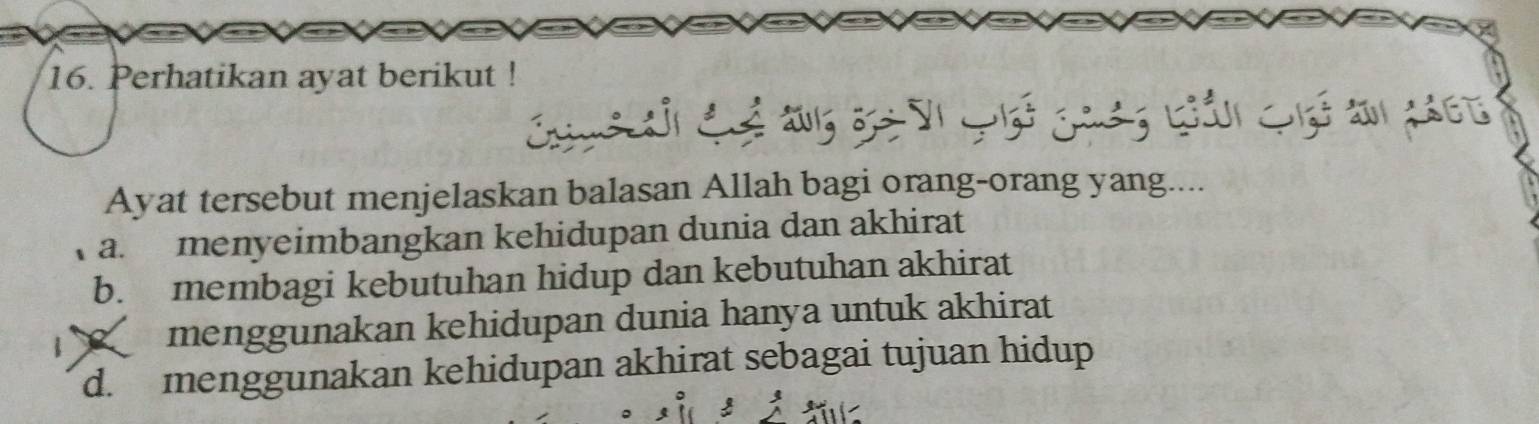 16. Perhatikan ayat berikut !
فَآتَاهُمُ اللَّهُ ثَوَابَ الدُّنْيَا وَحُسْنَ ثَوَابِ الْآخِرَةِ وَاللَّهُ يُحِبُّ الْمُحْسِنِينَ
Ayat tersebut menjelaskan balasan Allah bagi orang-orang yang....
a. menyeimbangkan kehidupan dunia dan akhirat
b. membagi kebutuhan hidup dan kebutuhan akhirat
menggunakan kehidupan dunia hanya untuk akhirat
d. menggunakan kehidupan akhirat sebagai tujuan hidup